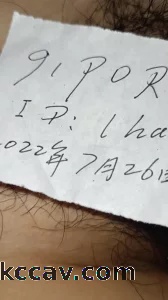 91POR
ID: lha
2022年7月26日
kccav.com